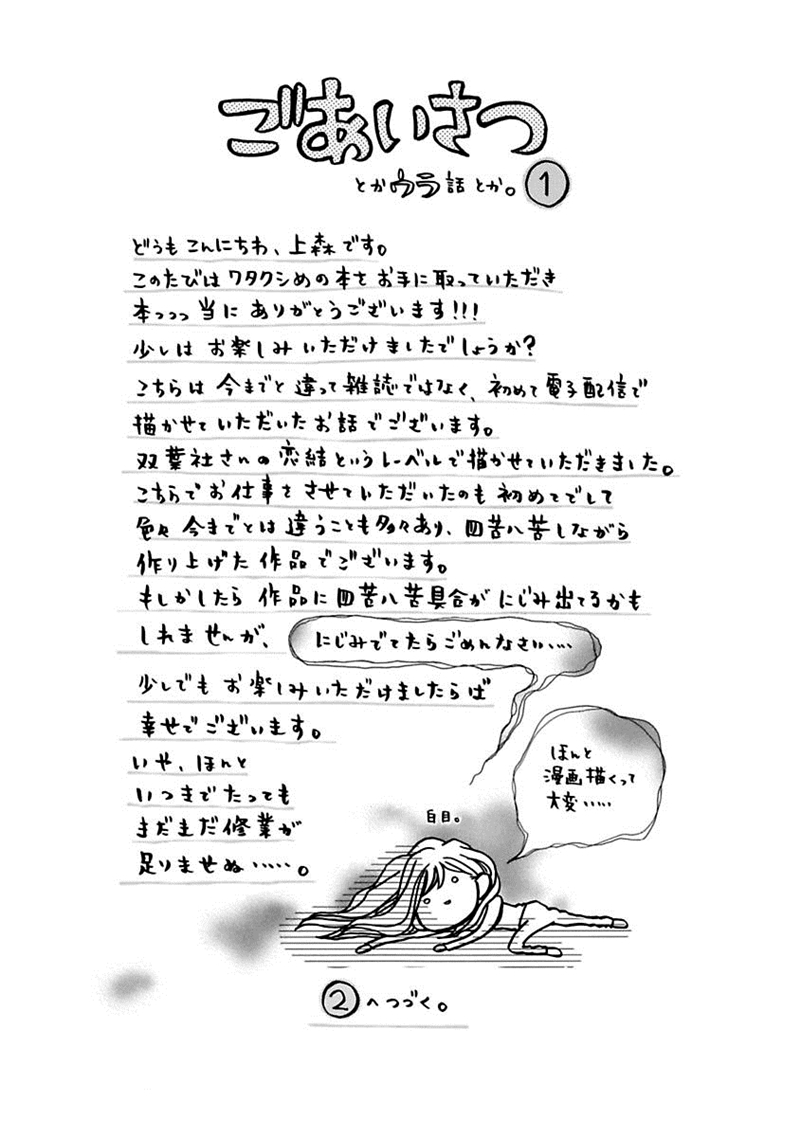 ごあいさつ
とかウラ話とか。①
どうもこんにちわ、上森です。
このたびはワタクシめの本をお手に取っていただき
本っっっ当にありがとうございます!!!
少しはお楽しみいただけましたでしょうか?
こちらは今までと違って雑誌ではなく、初めて電子配信で
描かせていただいたお話でございます。
双葉社さんの恋結というレーベルで描かせていただきました。
こちらでお仕事をさせていただいたのも初めてでして
色々今までとは違うことも多々あり、四苦八苦しながら
作り上げた作品でございます。
もしかしたら作品に四苦八苦具合がにじみ出てるかも
しれませんが、
にじみでてたらごめんなさい・・・・
少しでもお楽しみいただけましたらば
幸せでございます。
いや、ほんと
いつまでたっても
まだまだ修業が
足りませぬ・・・・・。
ほんと
漫画描くって
大変・・・・・
白目。
②へつづく。